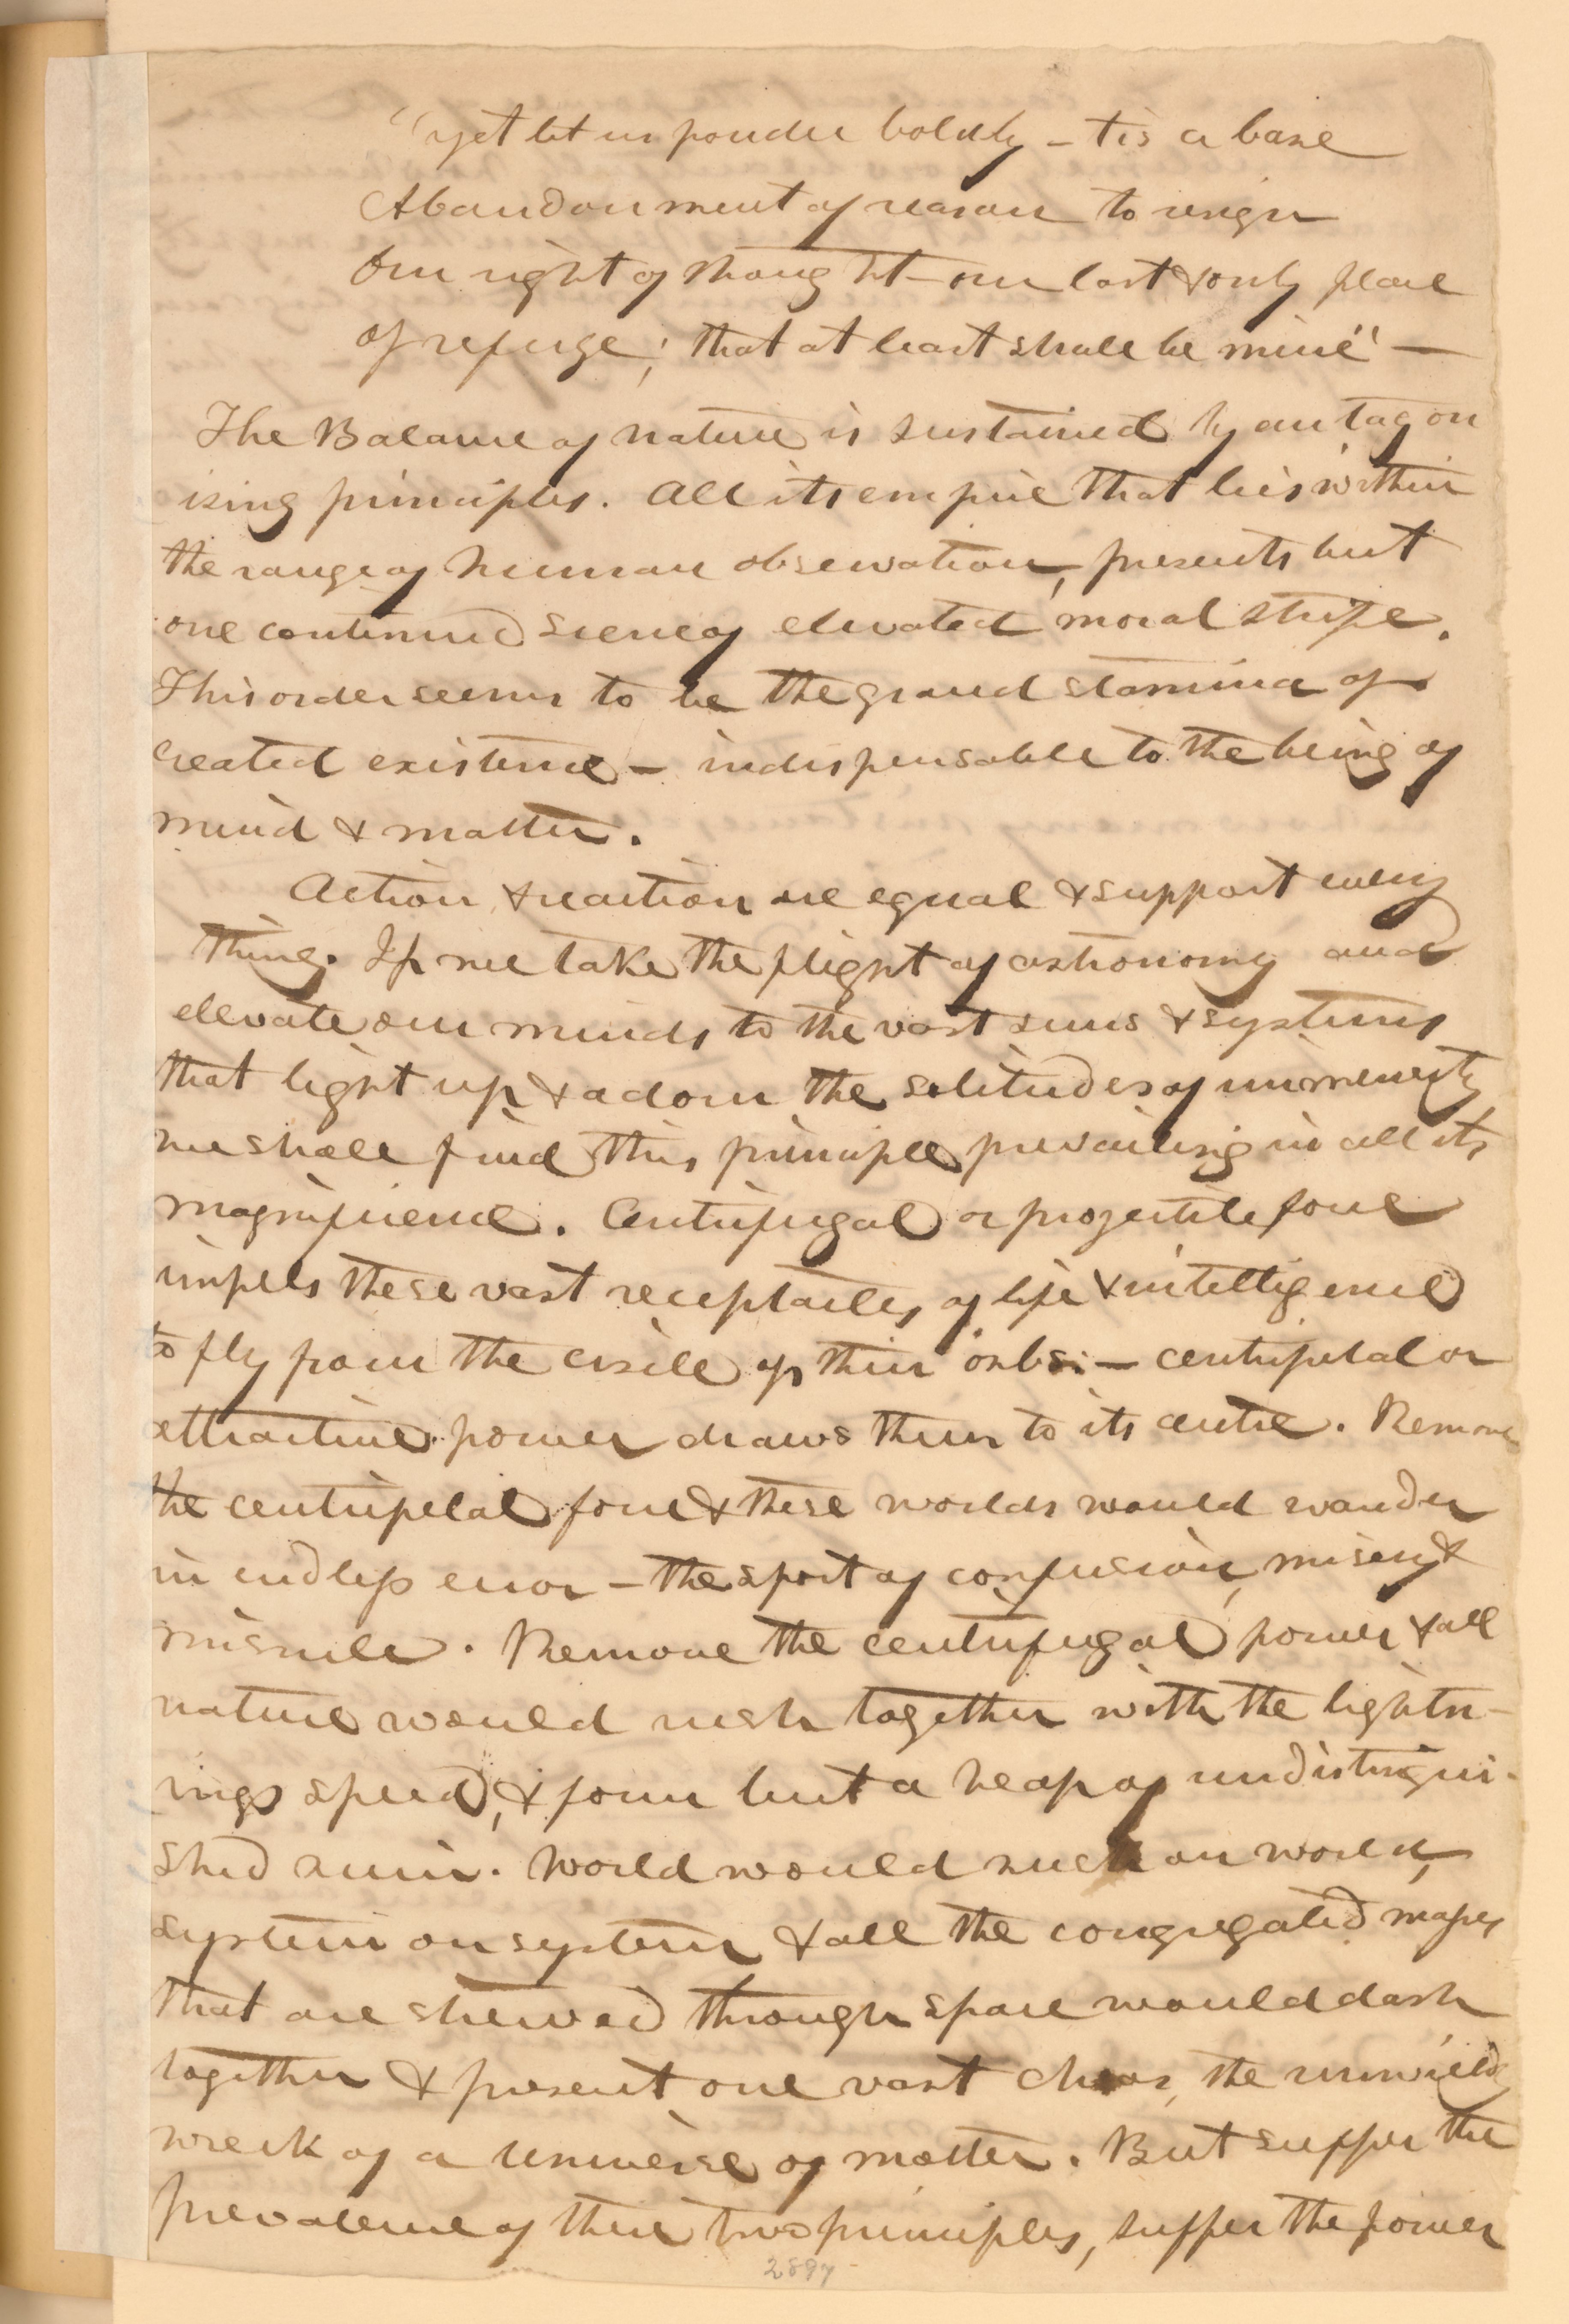 "yet let us ponder boldly – tis a base
Abandonment of reason to resign
Our right of thought – our last & only place
of refuge; that at least shall be mine" —
The Balance of nature is sustained by antagon
ising principles. All its empire that lies within
the range of human observation, presents but
one continued scene of elevated moral strife.
This order seems to be the grand stamina of
created existence – indispensable to the being of
mind & matter.
Action & reaction are equal & support every
thing. If we take the flight of astronomy and
elevate our minds to the vast suns & systems
that light up & adorn the solitudes of immensity
we shall find this principle prevailing in all its
magnificence. Centrifugal or projectile force
impels these vast receptacles of life & intelligence
to fly from the circle of their orbs: – centripetal or
attractive power draws them to its centre. Remove
the centripetal force & these worlds would wander
in endless error – the sport of confusion, misery &
misrule. Remove the centrifugal power & all
nature would rush together with the lightn-
ings speed, & form but a heap of undistingui-
shed ruin. World would rush on world,
system on system & all the congregated masses
that are strewed through space would dash
together & present one vast chaos, the unwieldy
wreck of a universe of matter. But suffer the
prevalence of these two principles, suffer the power
2897